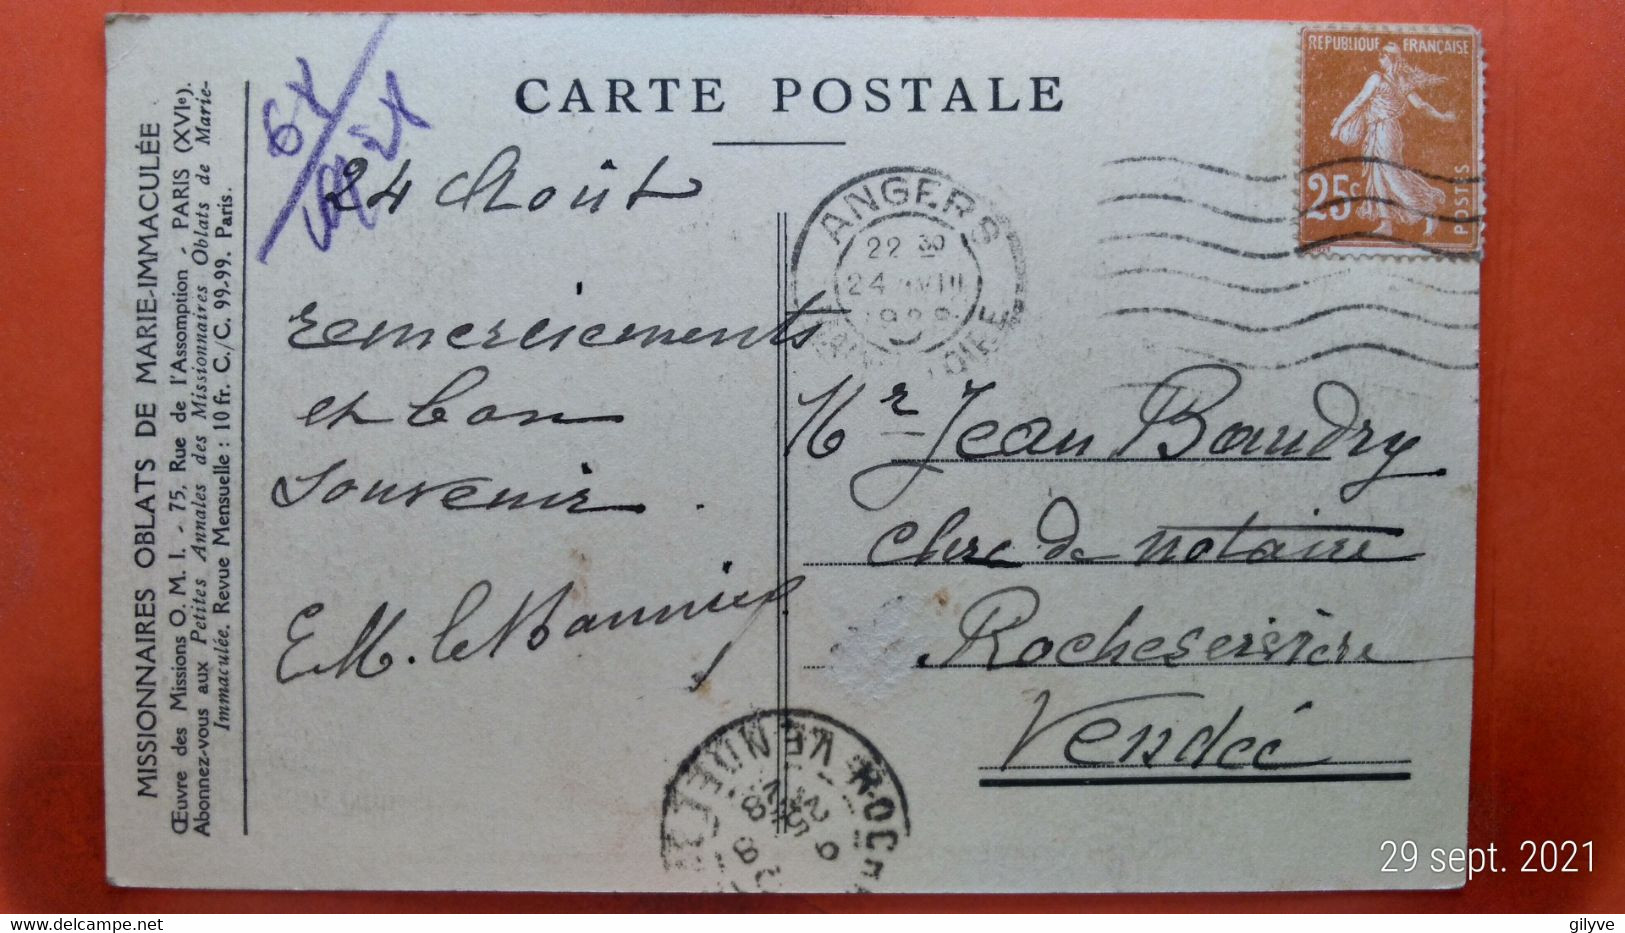 MISSIONNAIRES OBLATS DE MARIE-IMMACULÉE
Œuvre des Missions O. M. I. - 75, Rue de l'Assomption, PARIS (XVIe).
Abonnez-vous aux Petites Annales des Missionnaires Oblats de Marie-
Immaculée. Revue Mensuelle : 10 fr. C./C. 99-99. Paris.
CARTE POSTALE
24 Août
remerciements
et bon
souvenir.
E.M. le
RÉPUBLIQUE FRANÇAISE
25c
POSTES
ANGERS
22 30
24 VIII
Mr Jean Baudry
Clerc de notaire
Rocheservière
Vendée
29 sept. 2021
gilyve